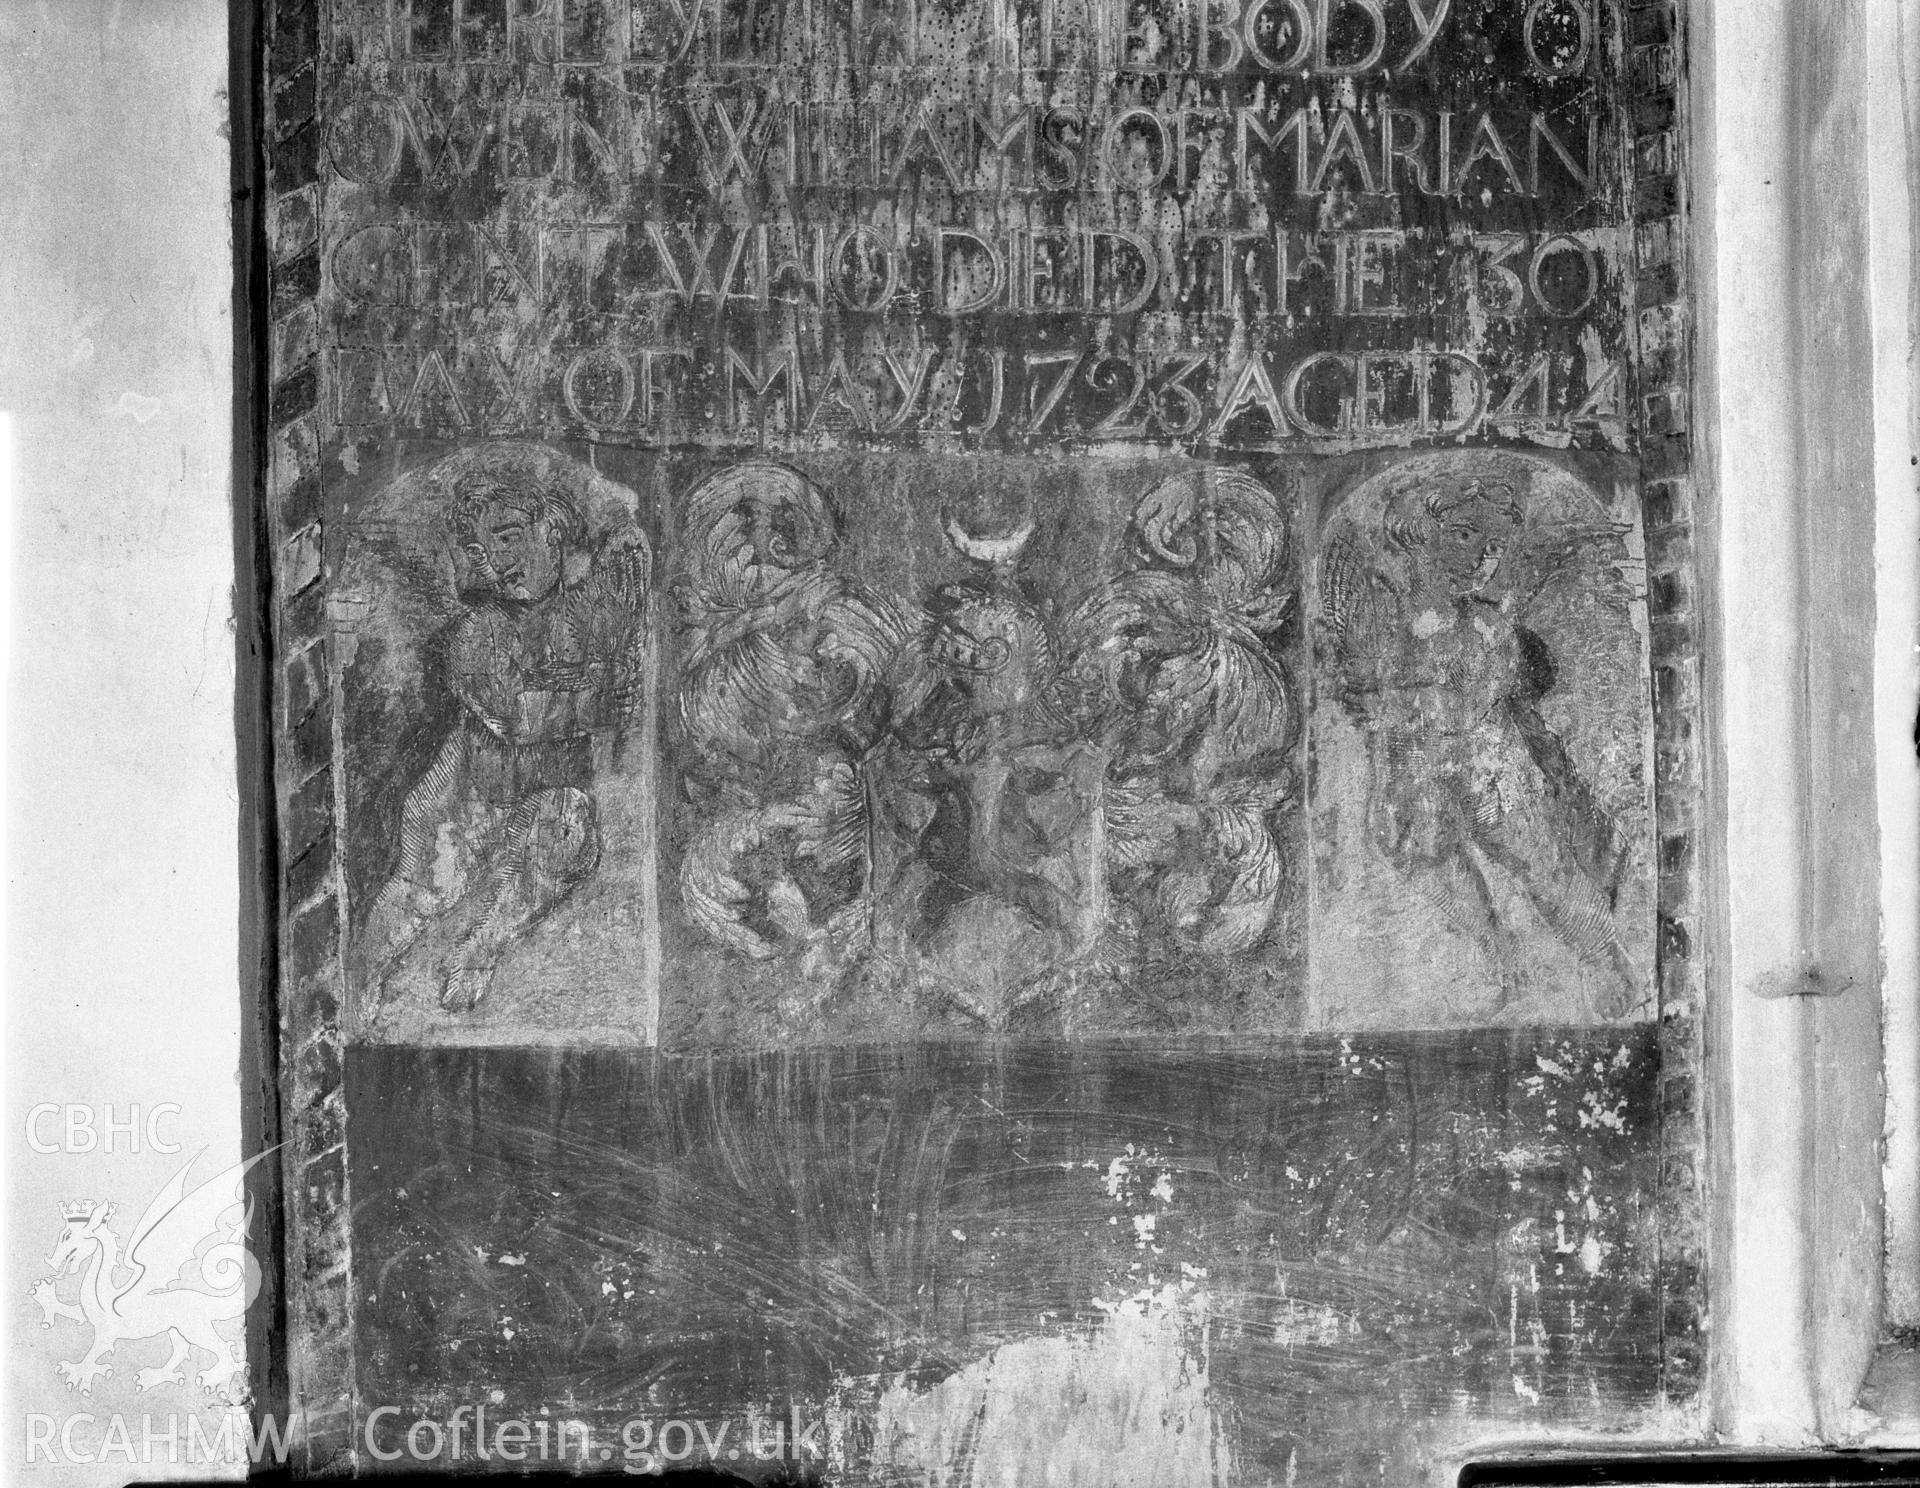 HEERE LYETH THE BODY OF
OWEN WILLIAMS OF MARIAN
CENT WHO DIED THE 30
DAY OF MAY 1723 AGED 44
CBHC
RCAHMW Coflein.gov.uk